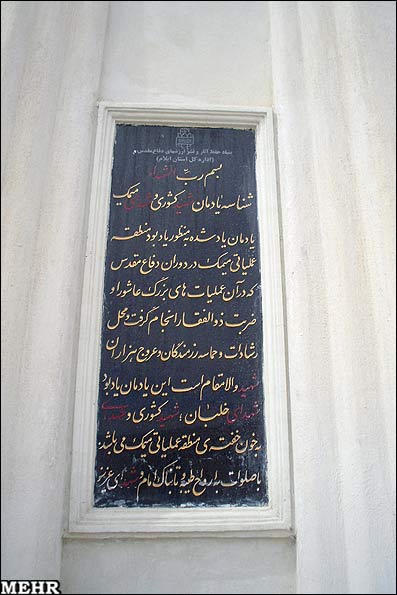 ستاد حفظ آثار و نشر ارزشهای دفاع مقدس
(اداره کل استان ایلام)
بسم رب الشهداء
شناسه یادمان شهید کشوری و شهدای میمک
یادمان یاد شده به منظور یادبود منطقه
عملیاتی میمک در دوران دفاع مقدس
که در آن عملیات های بزرگ عاشورا و
ضربت ذوالفقار انجام گرفت و محل
رشادت و حماسه رزمندگان و عروج هزاران
شهید والامقام است این یادمان یادبود
شهدای خلبان ؛ شهید کشوری و شهدای
به خون خفته ی منطقه عملیاتی میمک می باشد.
با صلوات به ارواح طیبه و تابناک امام و شهدای عزیز
MEHR